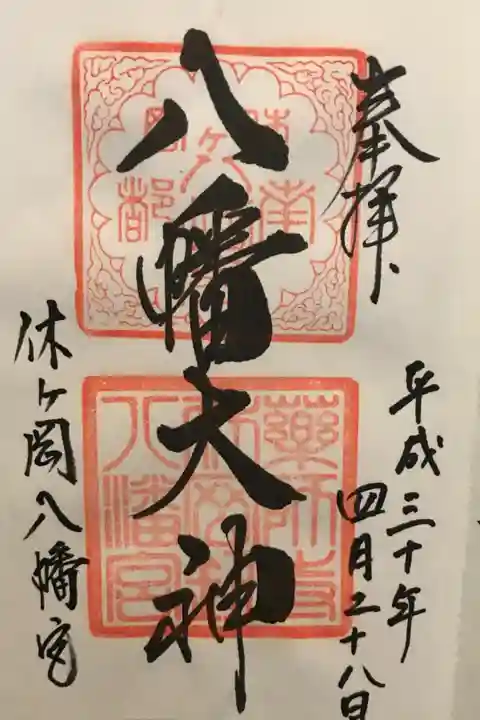 奉拝、
平成三十年
四月二十八日
八幡大神
休ヶ岡八幡宮